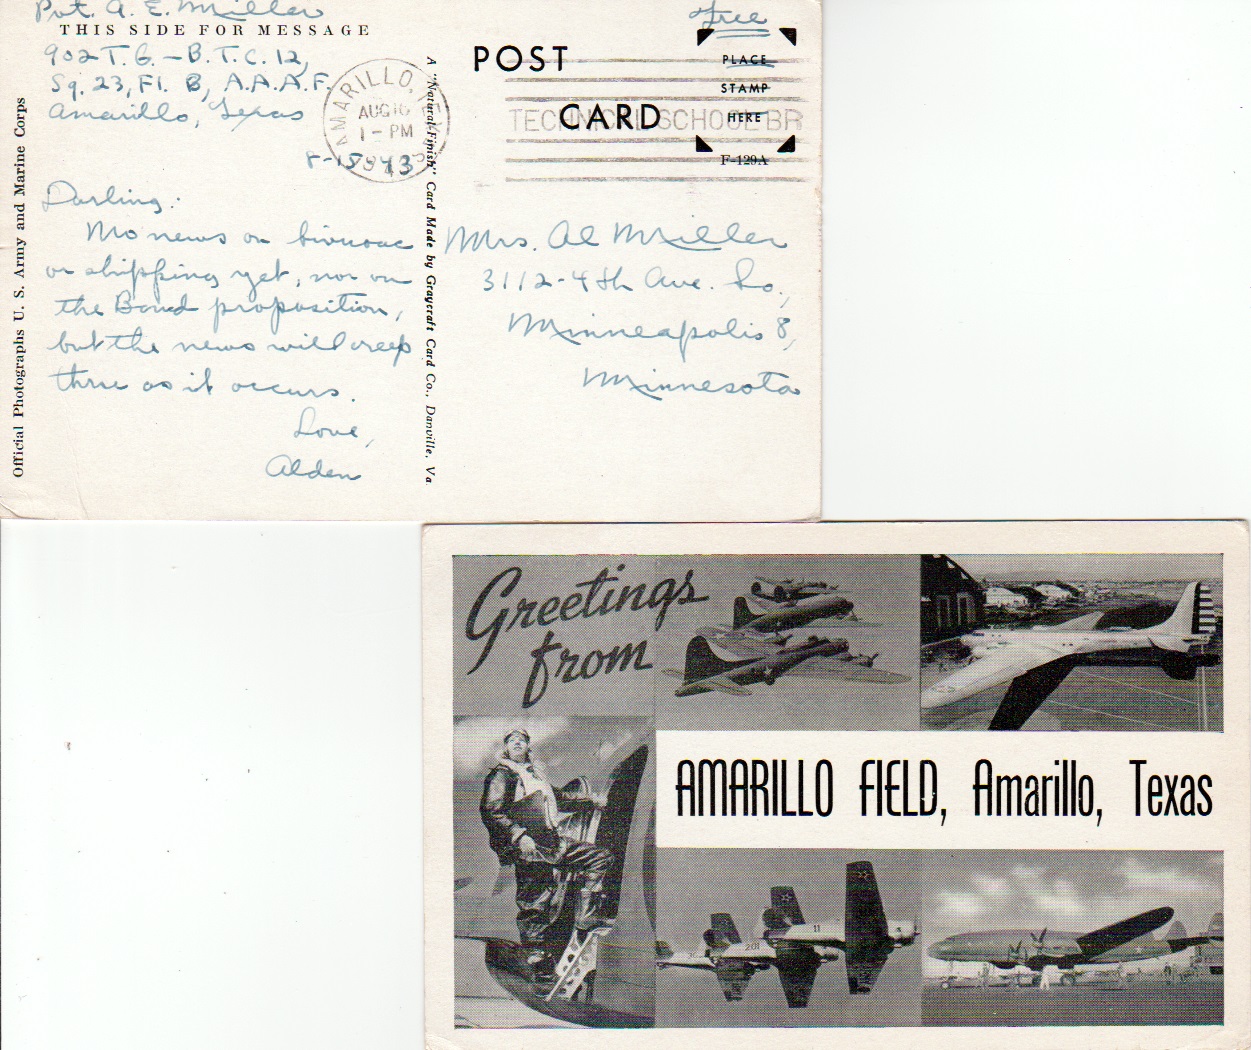 Pvt. A. E. Miller
THIS SIDE FOR MESSAGE
902 T.G. - B.T.C. 12,
Sq. 23, Fl. B, A.A.A.F.
Amarillo, Texas
8-15-43
Darling:
No news on bivouac
or shipping yet, nor on
the Bond proposition,
but the news will creep
thru as it occurs.
Love,
Alden
Official Photographs U. S. Army and Marine Corps
A "Natural-Finish" Card Made by Graycraft Card Co., Danville, Va
AMARILLO, TEX
AUG 16
1 - PM
1943
Free
POST CARD
PLACE
STAMP
HERE
F-129A
TECHNICAL SCHOOL BR
Mrs. Al Miller
3112-4th Ave. So.,
Minneapolis 8,
Minnesota
Greetings
from
AMARILLO FIELD, Amarillo, Texas
201
11